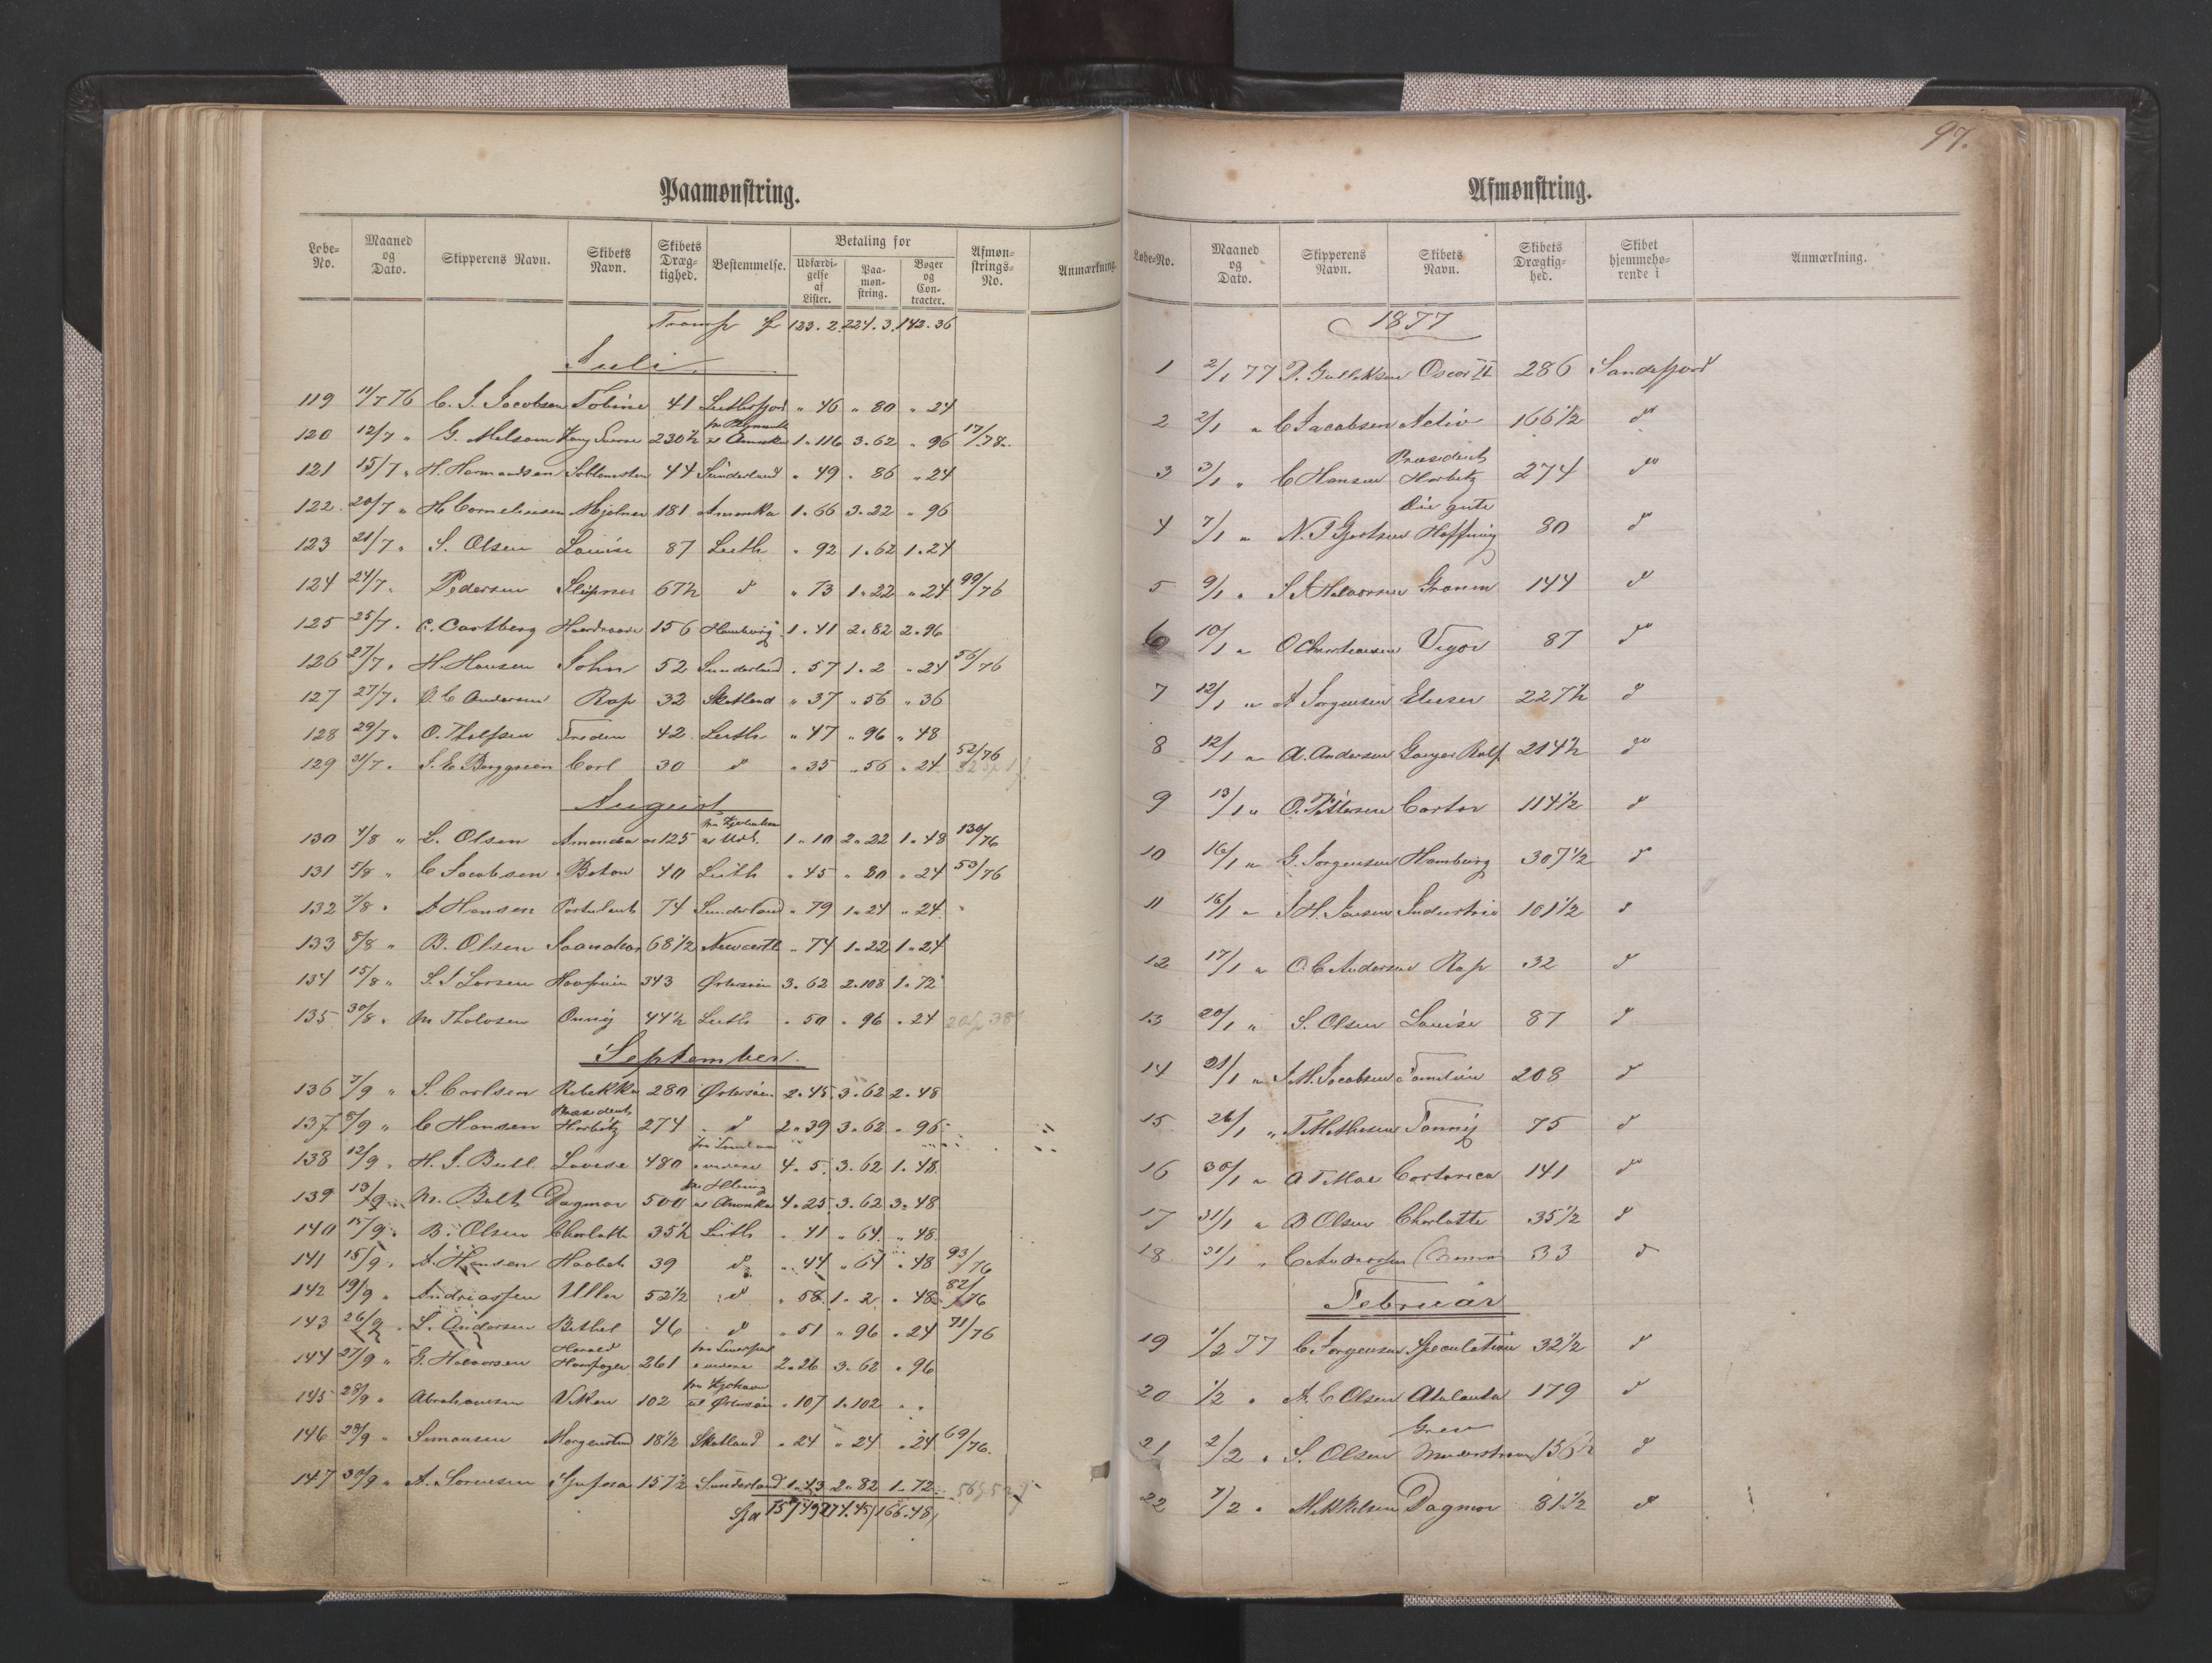 97.
Paamønstring.
Løbe-No. | Maaned og Dato. | Skipperens Navn. | Skibets Navn. | Skibets Dræg-tighed. | Bestemmelse. | Betaling for | Udfærdi-gelse af Lister. | Paa-møn-string. | Bøger og Con-tracter. | Afmøn-strings-No. | Anmærkning.
Transp 123.2. 224.3. 142.36
Juli
119 11/7 76 C. J. Jacobsen Tobine 41 " 46 " 80 " 24
120 12/7 " G. Melsom Kong Sverre 230½ fra Plymouth til Amerika 1. 116 3.62 " 96 17/78.
121 15/7 " H. Hermandsen 44 Sunderland " 49 " 86 " 24
122. 20/7 " H Corneliusen Mjølner 181 Amerika 1.66 3.22 " 96
123 21/7 " S. Olsen Louise 87 Leith " 92 1.62 1.24
124 24/7 " Pedersen Sleipner 67½ d " 73 1.22 " 24 99/76
125 25/7 " C. Castberg Haardraade 156 Hamburg 1.41 2.82 2.96
126 27/7 " H. Hansen John 52 Sunderland " 57 1.2 " 24 56/76
127 27/7 " O. C Andersen Rap 32 Skotland " 37 " 56 " 36
128 29/7 " O. Tholfsen Freden 42 Leith " 47 " 96 " 48
129 31/7 " S. E Berggreen Carl 30 d " 35 " 56 " 24 52/76
August
130 4/8 " L. Olsen Amanda 125 1.10 2.22 1.48 130/76
131 5/8 " C Jacobsen Beton 40 Leith " 45 " 80 " 24 53/76
132 7/8 " A Hansen 74 Sunderland " 79 1.24 " 24
133 8/8 " B. Olsen 68½ Newcastle " 74 1.22 1.24
134 15/8 " S. J Larsen Havfruen 343 Østersøen 3.62 2.108 1.72
135 30/8 " M Tholvsen Onny 44½ Leith " 50 " 96 " 24
September.
136 7/9 " S. Carlsen Rebekka 280 Østersøen 2.45 3.62 2.48
137 8/9 " C Hansen Præsident Harbitz 274 d 2.39 3.62 " 96
138 12/9 " H. J. Bull Lovise 480 4.5 3.62 1.48
139 13/9 " M. Bull Dagmar 500 til Amerika 4.25 3.62 3.48
140 15/9 " B. Olsen Charlotte 35½ Leith " 41 " 64 " 48
141 15/9 " A. Hansen Haabet 39 d " 44 " 64 " 48 93/76
142 19/9 " Andreassen Uller 52½ d " 58 1.2 " 48 82/76
143 26/9 " L. Andersen Bethel 46 d " 51 " 96 " 24 71/76
144 27/9 " G. Halvorsen Harald Haarfager 261 fra Liverpool 2.26 3.62 " 96
145 28/9 " Abrahamsen Viken 102 til Østersøen " 107 1.102 " "
146 28/9 " Simonsen Morgenstund 18½ Skotland " 24 " 24 " 24 69/76.
147 30/9 " A. Sørensen 157½ Sunderland 1.43 2.82 1.72
274.45 166.48
Afmønstring.
Løbe-No. | Maaned og Dato. | Skipperens Navn. | Skibets Navn. | Skibets Drægtig-hed. | Skibet hjemmehø-rende i | Anmærkning.
1877
1 2/1 77 P. Gulliksen Oscar II 286 Sandefjord
2 2/1 " C Jacobsen Activ 166½ do
3 3/1 " C Hansen Præsident Harbitz 274 do
4 7/1 " N. J Gjertsen Die gute Hoffnung 80 d
5 9/1 " S J Halvorsen Granen 144 d
6 10/1 " O Christiansen Vigor 87 do
7 12/1 " A Jørgensen Elieser 227½ d
8 12/1 " A. Andersen Ganger Rolf 214½ do
9 13/1 " O. Pettersen Castor 114½ d
10 16/1 " G. Jørgensen Hamburg 307½ d
11 16/1 " J H. Jensen Industrie 101½ d
12 17/1 " O. C Andersen Rap 32 d
13 20/1 " S. Olsen Louise 87 d
14 21/1 " J. M. Jacobsen Familien 208 d
15 26/1 " T Mathesen Fanny 75 d
16 30/1 " A T Moe Costarica 141 do
17 31/1 " B Olsen Charlotte 35½ d
18 31/1 " C Andersen 33 d
Februar
19 1/2 77 C Jørgensen Speculation 32½ d
20 1/2 " A. C Olsen Atalanta 179 d
21 2/2 " S. Olsen Grev 156½ d
22 7/2 " Mikkelsen Dagmar 81½ d